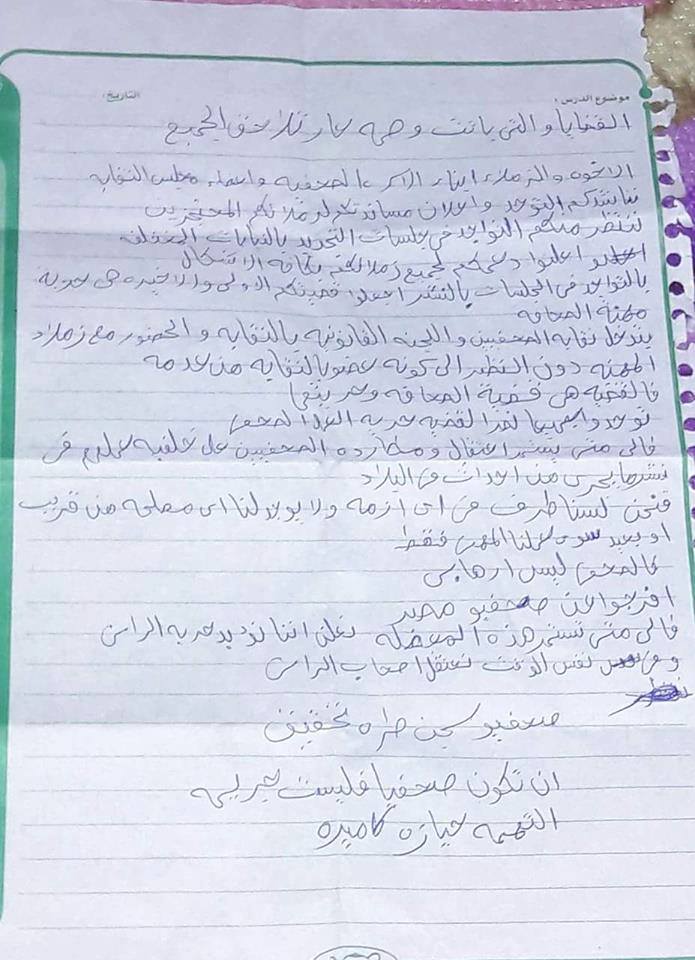 موضوع الدرس : التاريخ:
القضايا والتى باتت وصمه عار تلاحق الجميع
الاخوه والزملاء ابناء الاسره الصحفيه واعضاء مجلس النقابه
نناشدكم التوحد واعلان مساندتكم لزملائكم المحتجزين
ننتظر منكم التواجد فى جلسات التجديد بالنيابات المختلفه
اعلنوا دعمكم لجميع زملائكم بكافه الاشكال
بالتواجد فى الجلسات بالنشر اجعلوا قضيتكم الاولى والاخيره هى حريه
مهنة الصحافه
بتدخل نقابه الصحفيين واللجنه القانونيه بالنقابه و الحضور مع زملاء
المهنه دون النظر الى كونه عضو بالنقابه من عدمه
فالقضيه هى قضية الصحافه وحريتها
توحدوا جميعا لهذا القضيه حريه الصحفى
فالى متى يستمر اعتقال ومطارده الصحفيين على خلفيه عملهم فى
نشر ما يجرى من احداث فى البلاد
فنحن لسنا طرف فى اى ازمه ولا يوجد لنا اى مصلحه من قريب
او بعيد سوى عملنا المهنى فقط
فالصحفى ليس ارهابى
افرجوا عن صحفيو مصر
فالى متى تستمر هذه المعضله نعلن اننا نؤيد حريه الراى
وفى نفس الوقت نعتقل اصحاب الراى
صحفيو سجن طره تحقيق
ان تكون صحفيا فليست جريمه
التهمه حيازه كاميره